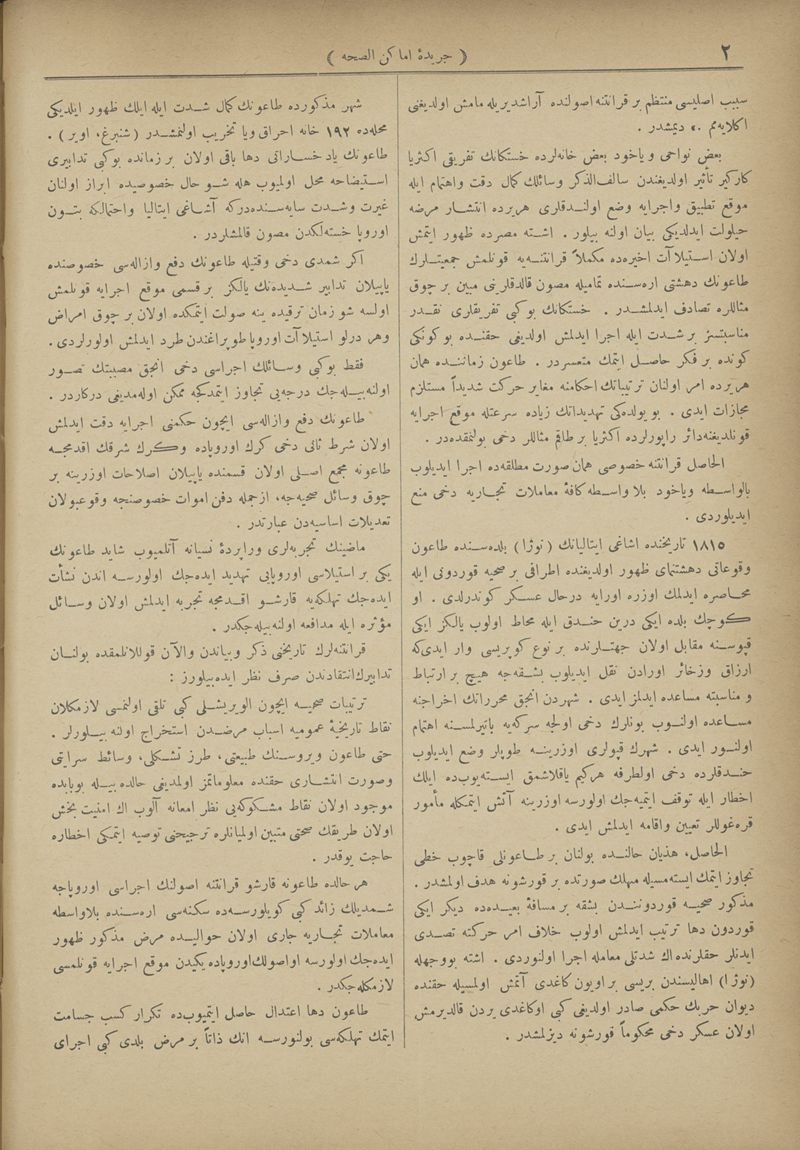 ٢
( جريدۀ اماكن الصحه )
سبب اصليسى منتظم بر قرانتنه اصولنده آراشديريله مامش اولديغنى
اكلايه‌م .» ديمشدر .
بعض نواحى و ياخود بعض خانه‌لرده خستكانك تفريقى اكثريا
كاركير تأثير اولديغندن سالف‌الذكر وسائلك كمال دقت واهتمام ايله
موقع تطبيق واجرايه وضع اولندقلرى هريرده انتشار مرضه
حيلولت ايدلديكى بيان اولنه بيلور . اشته مصرده ظهور ايتمش
اولان استيلاآت اخيره‌ده مكملاً قرانتنه‌يه قونلمش جمعيتلرك
طاعونك دهشتى اره‌سنده تماميله مصون قالدقلرينى مبين بر چوق
مثاللره تصادف ايدلمشدر . خستكانك بوكبى تفريقلرى نقدر
مناسبتسز بر شدت ايله اجرا ايدلمش اولديغى حقنده بوكونكى
كونده بر فكر حاصل ايتمك متعسردر . طاعون زماننده همان
هريرده امر اولنان ترتيباتك احكامنه مغاير حركت شديداً مستلزم
مجازات ايدى . بو يولده‌كى تهديداتك زياده سرعتله موقع اجرايه
قونلديغنه‌دائر راپورلرده اكثريا بر طاقم مثاللر دخى بولنمقده‌در .
الحاصل قرانتنه خصوصى همان صورت مطلقه‌ده اجرا ايديلوب
بالواسطه وياخود بلا واسطه كافۀ معاملات تجاريه دخى منع
ايديلوردى .
١٨١٥ تاريخنده اشاغى ايتاليانك (نوژا) بلده‌سنده طاعون
وقوعاتى دهشتنماى ظهور اولديغنده اطرافى بر صحيه قوردونى ايله
محاصره ايدلمك اوزره اورايه درحال عسكر كوندرلدى . او
كوچك بلده ايكى درين خندق ايله محاط اولوب يالكز ايكى
قپوسنه مقابل اولان جهتلرنده بر نوع كوپريسى وار ايدى‌كه
ارزاق وذخائر اورادن نقل ايديلوب بشقه‌جه هيچ بر ارتباط
و مناسبته مساعده ايدلمز ايدى . شهردن انجق محرراتك اخراجنه
مساعده اولنوب بونلرك دخى اولجه سركه‌يه باتيرلمسنه اهتمام
اولنور ايدى . شهرك قپولرى اوزرينه طوپلر وضع ايديلوب
خندقلرده دخى اولطرفه هركيم ياقلاشمق ايسته‌يوب‌ده ايلك
اخطار ايله توقف ايتميه‌جك اولورسه اوزرينه آتش ايتمكله مأمور
قره‌غوللر تعيين واقامه ايدلمش ايدى .
الحاصل، هذيان حالنده بولنان بر طاعونلى قاچوب خطى
تجاوز ايتمك ايسته‌مسيله مهلك صورتده بر قورشونه هدف اولمشدر .
مذكور صحيه قوردونندن بشقه بر مسافۀ بعيده‌ده ديكر ايكى
قوردون دها ترتيب ايدلمش اولوب خلاف امر حركته تصدى
ايدنلر حقلرنده اك شدتلى معامله اجرا اولنوردى . اشته بووجهله
(نوژا) اهاليسندن بريسى بر اويون كاغدى آتمش اولمسيله حقنده
ديوان حربك حكمى صادر اولديغى كبى اوكاغدى يردن قالديرمش
اولان عسكر دخى محكوماً قورشونه ديزلمشدر .
شهر مذكورده طاعونك كمال شدت ايله ايلك ظهور ايلديكى
محله‌ده ١٩٢ خانه احراق ويا تخريب اولنمشدر (شنبرغ، اوبر) .
طاعونك ياد خساراتى دها باقى اولان بر زمانده بوكبى تدابيرى
استيضاحه محل اولميوب هله شو حال خصوصيده ابراز اولنان
غيرت وشدت سايه‌سنده‌دركه آشاغى ايتاليا واحتمالكه بتون
اوروپا خسته‌لكدن مصون قالمشلردر .
اكر شمدى دخى وقتيله طاعونك دفع وازاله‌سى خصوصنده
ياپيلان تدابير شديده‌نك يالكز بر قسمى موقع اجرايه قونلمش
اولسه شو زمان ترقيده ينه صولت ايتمكده اولان بر چوق امراض
وهر درلو استيلاآت اوروپا طوپراغندن طرد ايدلمش اولورلردى .
فقط بوكبى وسائلك اجراسى دخى انجق مصيبتك تصور
اولنه‌بيله‌جك درجه‌يى تجاوز ايتمدكجه ممكن اوله‌مديغى دركاردر .
طاعونك دفع وازاله‌سى ايچون حكمنى اجرايه دقت ايدلمش
اولان شرط ثانى دخى كرك اوروپاده وكرك شرقك اقدمجه
طاعونه مجمع اصلى اولان قسمنده ياپيلان اصلاحات اوزرينه بر
چوق وسائل صحيه‌جه، ازجمله دفن اموات خصوصنجه وقوعبولان
تعديلات اساسيه‌دن عبارتدر .
ماضينك تجربه‌لرى ورايردۀ نسيانه آتلميوب شايد طاعونك
يكى بر استيلاسى اوروپايى تهديد ايده‌جك اولورسه اندن نشأت
ايده‌جك تهلكه‌يه قارشو اقدمجه تجربه ايدلمش اولان وسائل
مؤثره ايله مدافعه اولنه‌بيله‌جكدر .
قرانتنه‌لرك تاريخنى ذكر وبياندن والآن قوللانلمقده بولنان
تدابيرك‌انتقادندن صرف نظر ايده‌بيلورز :
ترتيبات صحيه ايچون الويريشلى كبى تلقى اولنمسى لازمكلان
نقاط تاريخيۀ عموميه اسباب مرضدن استخراج اولنه بيلورلر .
حتى طاعون ويروسنك طبيعتى، طرز تشكلى، وسائط سرايتى
وصورت انتشارى حقنده معلوماتمز اولمديغى حالده بيله بوبابده
موجود اولان نقاط مشكوكه‌يى نظر امعانه آلوب اك امنيت بخش
اولان طريقك صحتى متبين اولميانلره ترجيحنى توصيه ايتمكى اخطاره
حاجت يوقدر .
هر حالده طاعونه قارشو قرانتنه اصولنك اجراسى اوروپاجه
شمديلك زائد كبى كويلورسه‌ده سكنه‌سى اره‌سنده بلاواسطه
معاملات تجاريه جارى اولان حواليده مرض مذكور ظهور
ايده‌جك اولورسه اواصولك‌اوروپاده‌يكيدن موقع اجرايه قونلمسى
لازمكله‌جكدر .
طاعون دها اعتدال حاصل ايتميوب‌ده تكرار كسب جسامت
ايتمك تهلكه‌سى بولنورسه انك ذاتاً بر مرض بلدى كبى اجراى